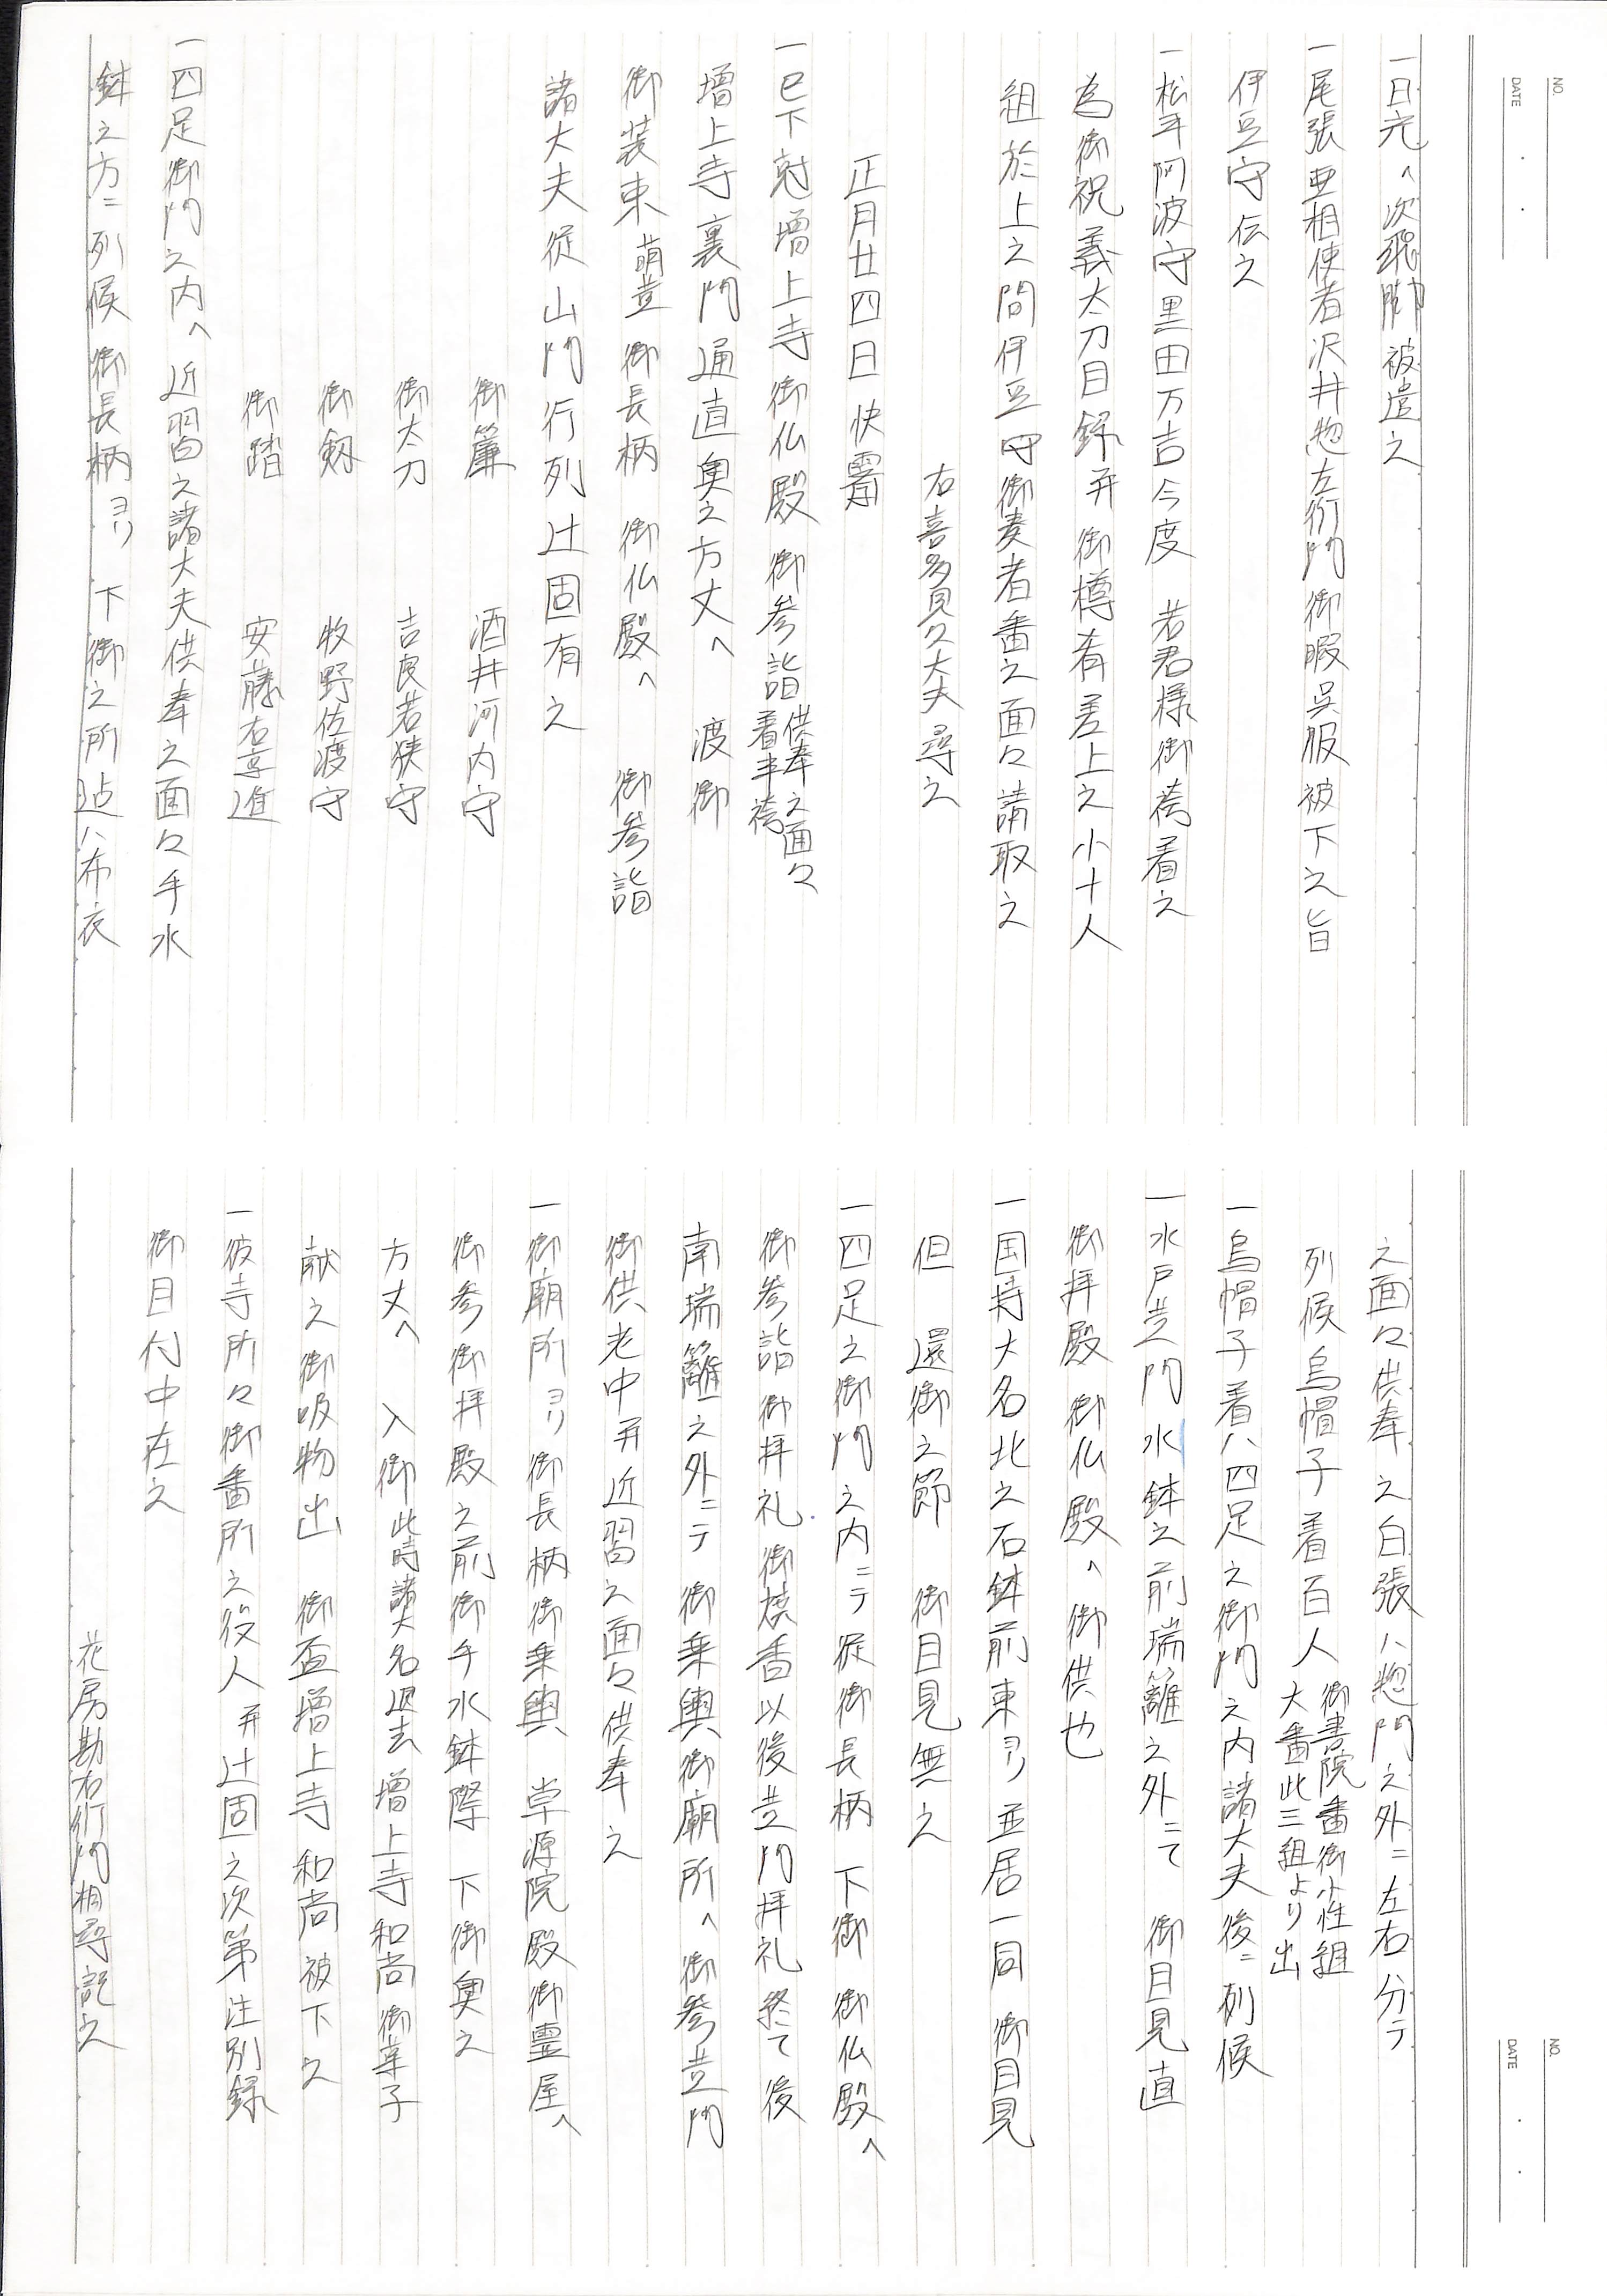 NO.
DATE
一日光へ次飛脚被遣之
一尾張亜相使者沢井惣左衛門御暇呉服被下之旨
伊豆守伝之
一松平阿波守黒田万吉今度 若君様御袴着之
為御祝義太刀目録并御樽肴差上之小十人
組於上之間伊豆守御奏者番之面々請取之
右喜多見久大夫尋之
正月廿四日快霽
一巳下刻増上寺御仏殿 御参詣供奉之面々着半袴
増上寺裏門通直奥之方丈へ 渡御
御装束萌立御長柄 御仏殿へ 御参詣
諸大夫従山門行列辻固有之
御簾 酒井河内守
御太刀 吉良若狭守
御剱 牧野佐渡守
御踏 安藤右京進
一四足御門之内へ近習之諸大夫供奉之面々手水
鉢之方ニ列候御長柄ヨリ 下御之所迠ハ布衣
NO.
DATE
之面々供奉之白張ハ惣門之外ニ左右分テ
列候烏帽子着百人御書院番御小性組大番此三組より出
一烏帽子着ハ四足之御門之内諸大夫後ニ列候
一水戸黄門水鉢之前瑞籬之外ニて 御目見直
御拝殿御仏殿へ御供也
一国持大名北之石鉢前東ヨリ並居一同御目見
但 還御之節 御目見無之
一四足之御門之内ニテ従御長柄 下御 御仏殿へ
御参詣御拝礼御焼香以後黄門拝礼終て後
南瑞籬之外ニテ御乗輿御廟所へ御参黄門
御供老中并近習之面々供奉之
一御廟所ヨリ御長柄御乗輿 崇源院殿御霊屋へ
御参御拝殿之前御手水鉢際 下御奥之
方丈へ 入御此時諸大名退去増上寺和尚御菓子
献之御吸物出 御盃増上寺和尚被下之
一彼寺所々御番所之役人并辻固之次第注別録
御目付中在之
花房勘右衛門相尋記之